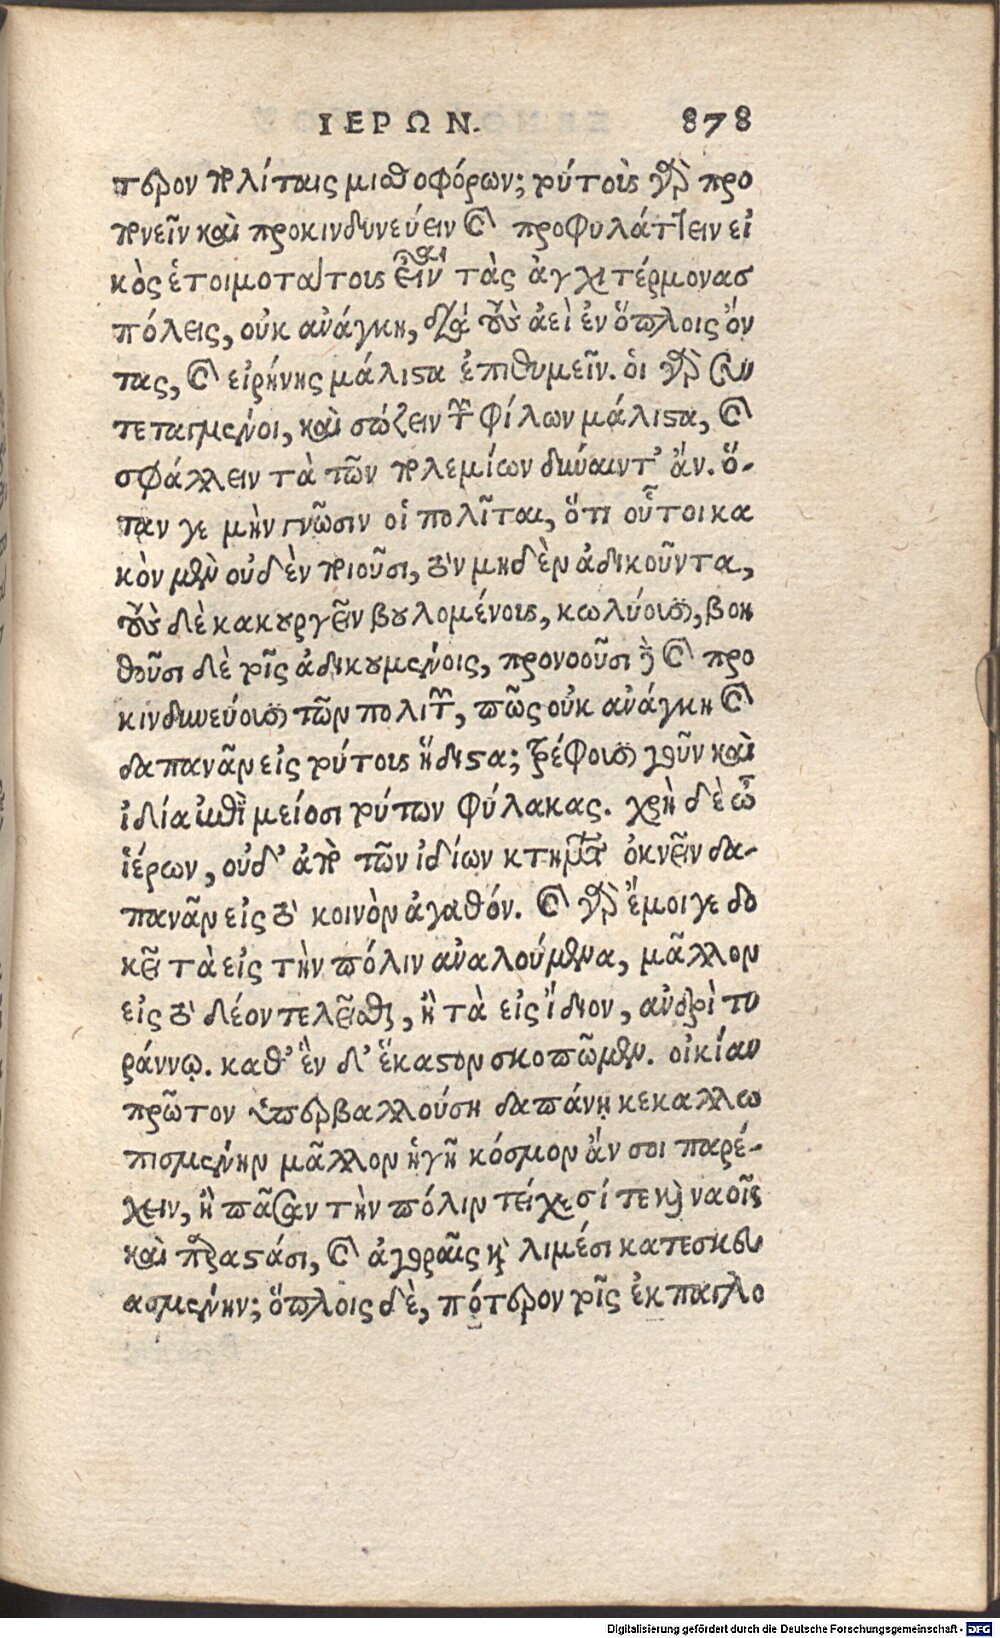 ΙΕΡΩΝ. 878
τερον πολίταις μισθοφόρων; τούτους γὰρ προ
πονεῖν καὶ προκινδυνεύειν καὶ προφυλάττειν εἰ
κὸς ἑτοιμοτάτους εἶναι τὰς ἀγχιτέρμονασ
πόλεις, οὐκ ἀνάγκη, διὰ τοὺς ἀεὶ ἐν ὅπλοις ὄν
τας, καὶ εἰρήνης μάλιστα ἐπιθυμεῖν. οἱ γὰρ συν
τεταγμένοι, καὶ σώζειν τῶν φίλων μάλιστα, καὶ
σφάλλειν τὰ τῶν πολεμίων δύναιντ’ ἄν. ὅ-
ταν γε μὴν γνῶσιν οἱ πολῖται, ὅτι οὗτοι κα
κὸν μὲν οὐδὲν ποιοῦσι, τὸν μηδὲν ἀδικοῦντα,
τοὺς δὲ κακουργεῖν βουλομένους, κωλύουσι, βοη
θοῦσι δὲ τοῖς ἀδικουμένοις, προνοοῦσι δὲ καὶ προ
κινδυνεύουσι τῶν πολιτῶν, πῶς οὐκ ἀνάγκη καὶ
δαπανᾶν εἰς τούτους ἥδιστα; τρέφουσι γοῦν καὶ
ἰδία ἐπὶ μείοσι τούτων φύλακας. χρὴ δὲ ὦ
ἱέρων, οὐδ’ ἀπὸ τῶν ἰδίων κτημάτων ὀκνεῖν δα-
πανᾶν εἰς τὸ κοινὸν ἀγαθόν. καὶ γὰρ ἔμοιγε δο
κεῖ τὰ εἰς τὴν πόλιν ἀναλούμενα, μᾶλλον
εἰς τὸ δέον τελεῖσθαι, ἢ τὰ εἰς ἴδιον, ἀνδρὶ τυ
ράννῳ. καθ’ ἓν δ’ ἕκαστον σκοπῶμεν. οἰκίαν
πρῶτον ὑπερβαλλούσῃ δαπάνῃ κεκαλλω
πισμένην μᾶλλον ἡγῇ κόσμον ἄν σοι παρέ-
χειν, ἢ πᾶσαν τὴν πόλιν τείχεσί τε καὶ ναοῖς
καὶ παραστάσι, καὶ ἀγοραῖς καὶ λιμέσι κατεσκευ
ασμένην; ὅπλοις δὲ, πότερον τοῖς ἐκπαγλο
Digitalisierung gefördert durch die Deutsche Forschungsgemeinschaft - DFG